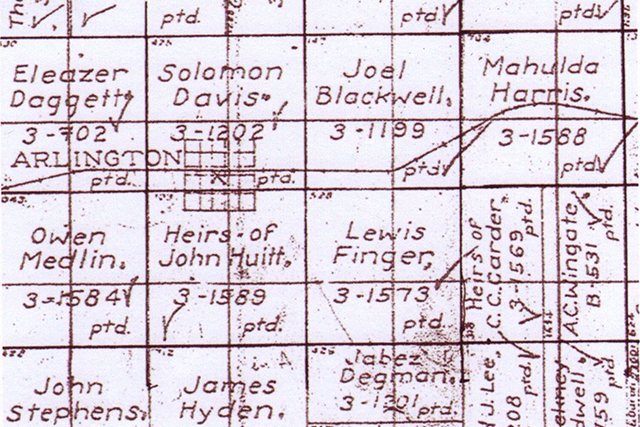 ptd.
ptd.
ptd.
Eleazer
Daggett.
3-702
ARLINGTON
ptd.
Solomon
Davis.
3-1202
ptd.
Joel
Blackwell.
3-1199
ptd.
Mahulda
Harris.
3-1588
ptd.
Owen
Medlin.
3-1584
ptd.
Heirs of
John Huitt.
3-1589
ptd.
Lewis
Finger.
3-1573
ptd.
Heirs of
C.C. Carder.
3-1569
ptd.
A.C. Wingate.
B-531
ptd.
John
Stephens.
James
Hyden.
Jabez
Degman.
3-1201
ptd.
J. Lee.
208
ptd.
159
ptd.